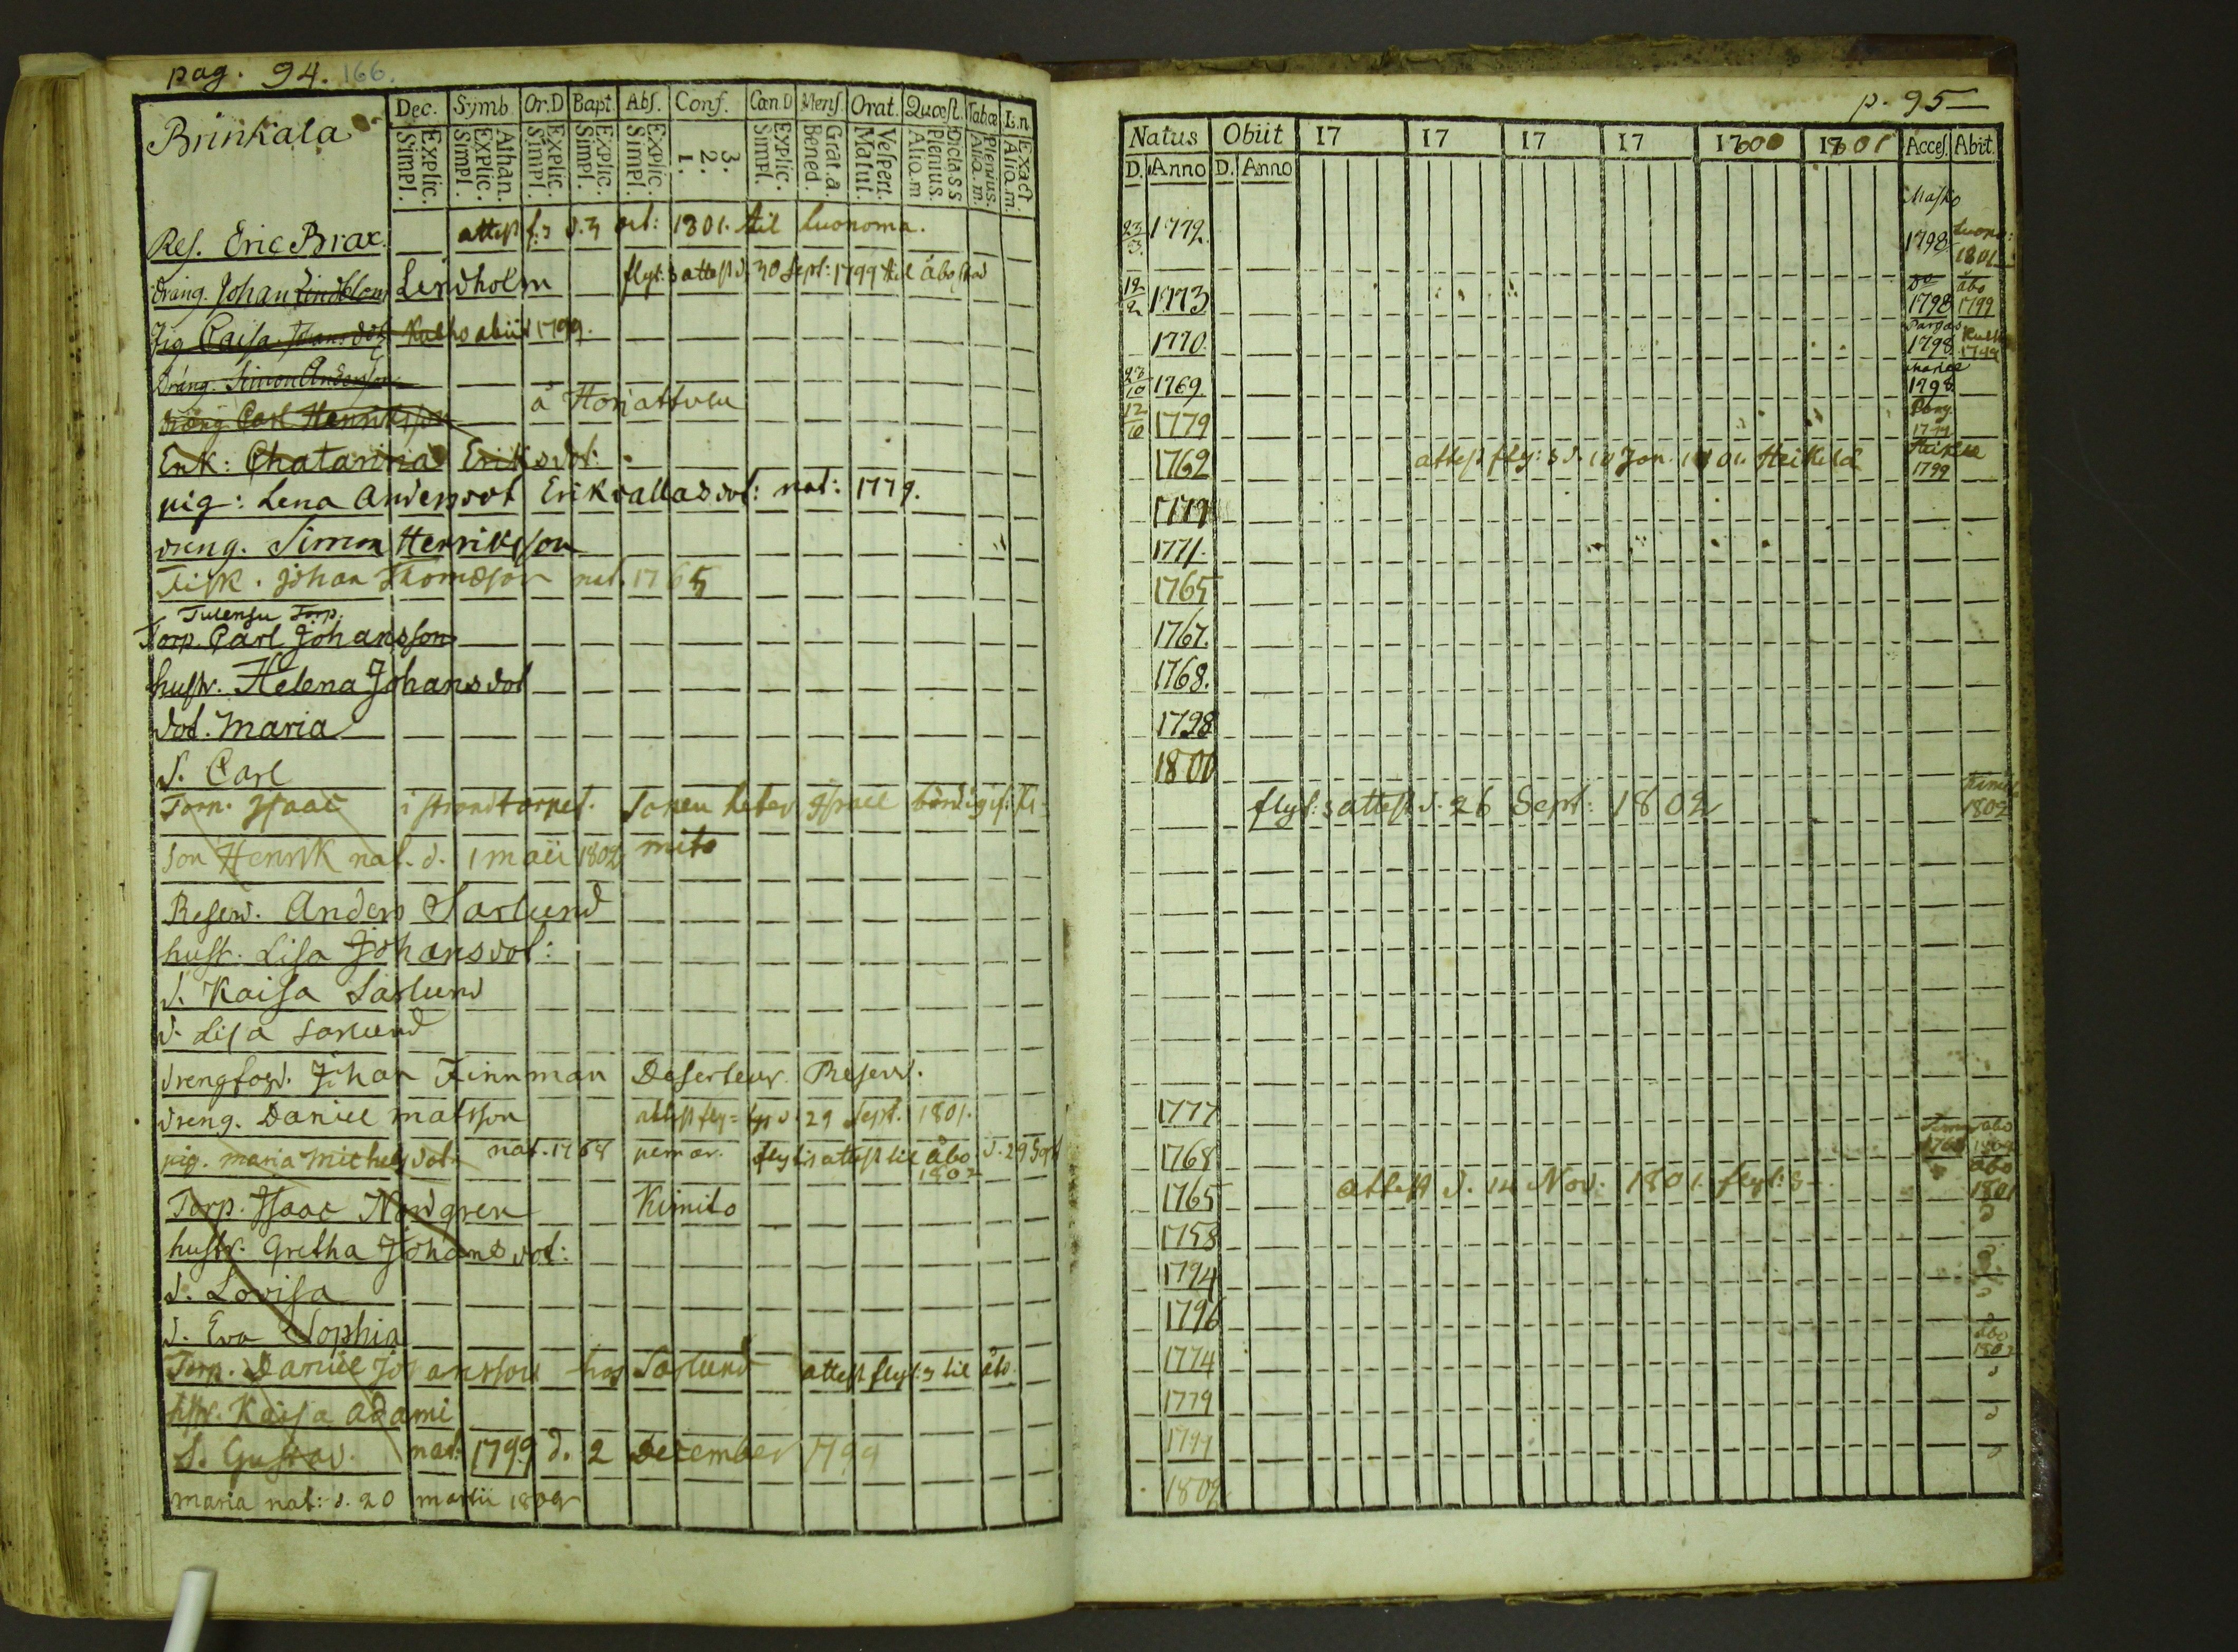 pag. 94. 166.
Brinkala
Dec. Symb. Or.D Bapt. Abs. Conf. Cœn.D Mens. Orat. Quæst. Tabœ L.n.
Explic. Simpl. Athan. Explic. Simpl. Explic. Simpl. Explic. Simpl. Explic. Simpl. 3. 2. 1. Explic. Simpl. Grat.a. Bened. Vespert. Matut. Dic.ta s s Plenius. Alia.m Plenius. Alia.m. Exact Alia.m.
Res. Eric Brax. attest f:s d. 3 oct: 1801. til
dräng. Johan Lindblom Lindholm flyt:s attest d. 30 Sept: 1799 til åbo stad
Pig Caisa Johansdot Kulho abiit 1799.
Dräng. Simon Andersson
dräng Carl Henriksson å
Enk: Chatarina Eriksdot:
pig: Lena Andersdot Erikvallasdot: nat: 1779.
dreng. Simon Henriksson
Fisk. Johan Thomasson nat. 1765
Tulensu Torp.
Torp. Carl Johansson
hustr. Helena Johansdot
dot. Maria
S. Carl
Torp. Isaac i strandtorpet. Israel
son Henrik nat. d. 1 maii 1802 mito
Reserv. Anders Sarlund
hust. Lisa Johansdot:
d. Kaisa Sarlund
d. Lisa Sarlund
drengfogd. Johan Finnman Deserteur. Reserv.
dreng. Daniel matsson attest fly= d. 29 Sept. 1801.
pig. maria michelsdot nat. 1768 pemar. flyt:s attest til Åbo d. 29 Sept
1802
Torp. Isaac Nordgren Kimito
hustr. Gretha Johansdot:
d. Lovisa
d. Eva Sophia
Torp. Daniel Johansson hos Sarlund attest flyt:s til åbo
hstr. Kaisa Adami
S. Gustav. nat: 1799 d. 2 December 1799
maria nat: d. 20 martii 1802
p. 95
Natus Obiit 17 17 17 17 1800 1801 Acces. Abit.
D. Anno D. Anno
Masko
23/3. 1772. 1798 1801
12/2 1773 do 1798 åbo 1799
1770. Pargas 1798 1799
23/10 1769. 1798
12/6 1779
1762 attest fly:s d. 10 Jan. 1801. Heikkilä 1799
1779
1771.
1765
1767.
1768.
1798
1800
flyt:s attest d. 26 Sept: 1802 Kimito 1802
1777
1768 åbo
1765 attest d. 14 Nov: 1801 flyt:s åbo 1801
1758
1794
1796
1774 åbo 1802
1779
1799
1802